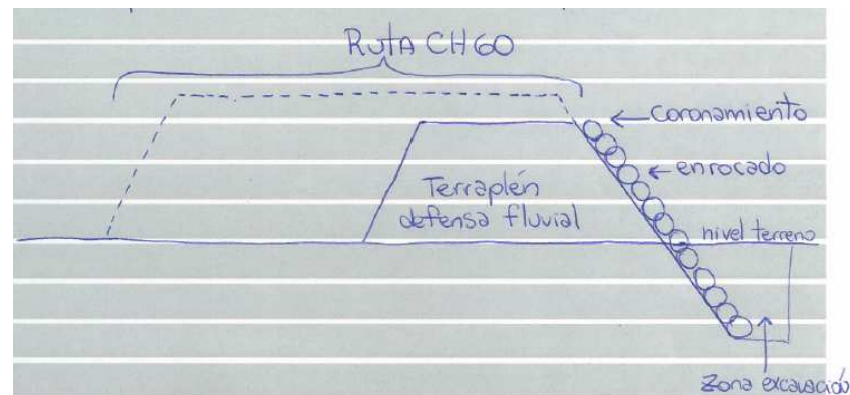 Ruta CH60
coronamiento
enrocado
Terraplén
defensa fluvial
nivel terreno
Zona excavación